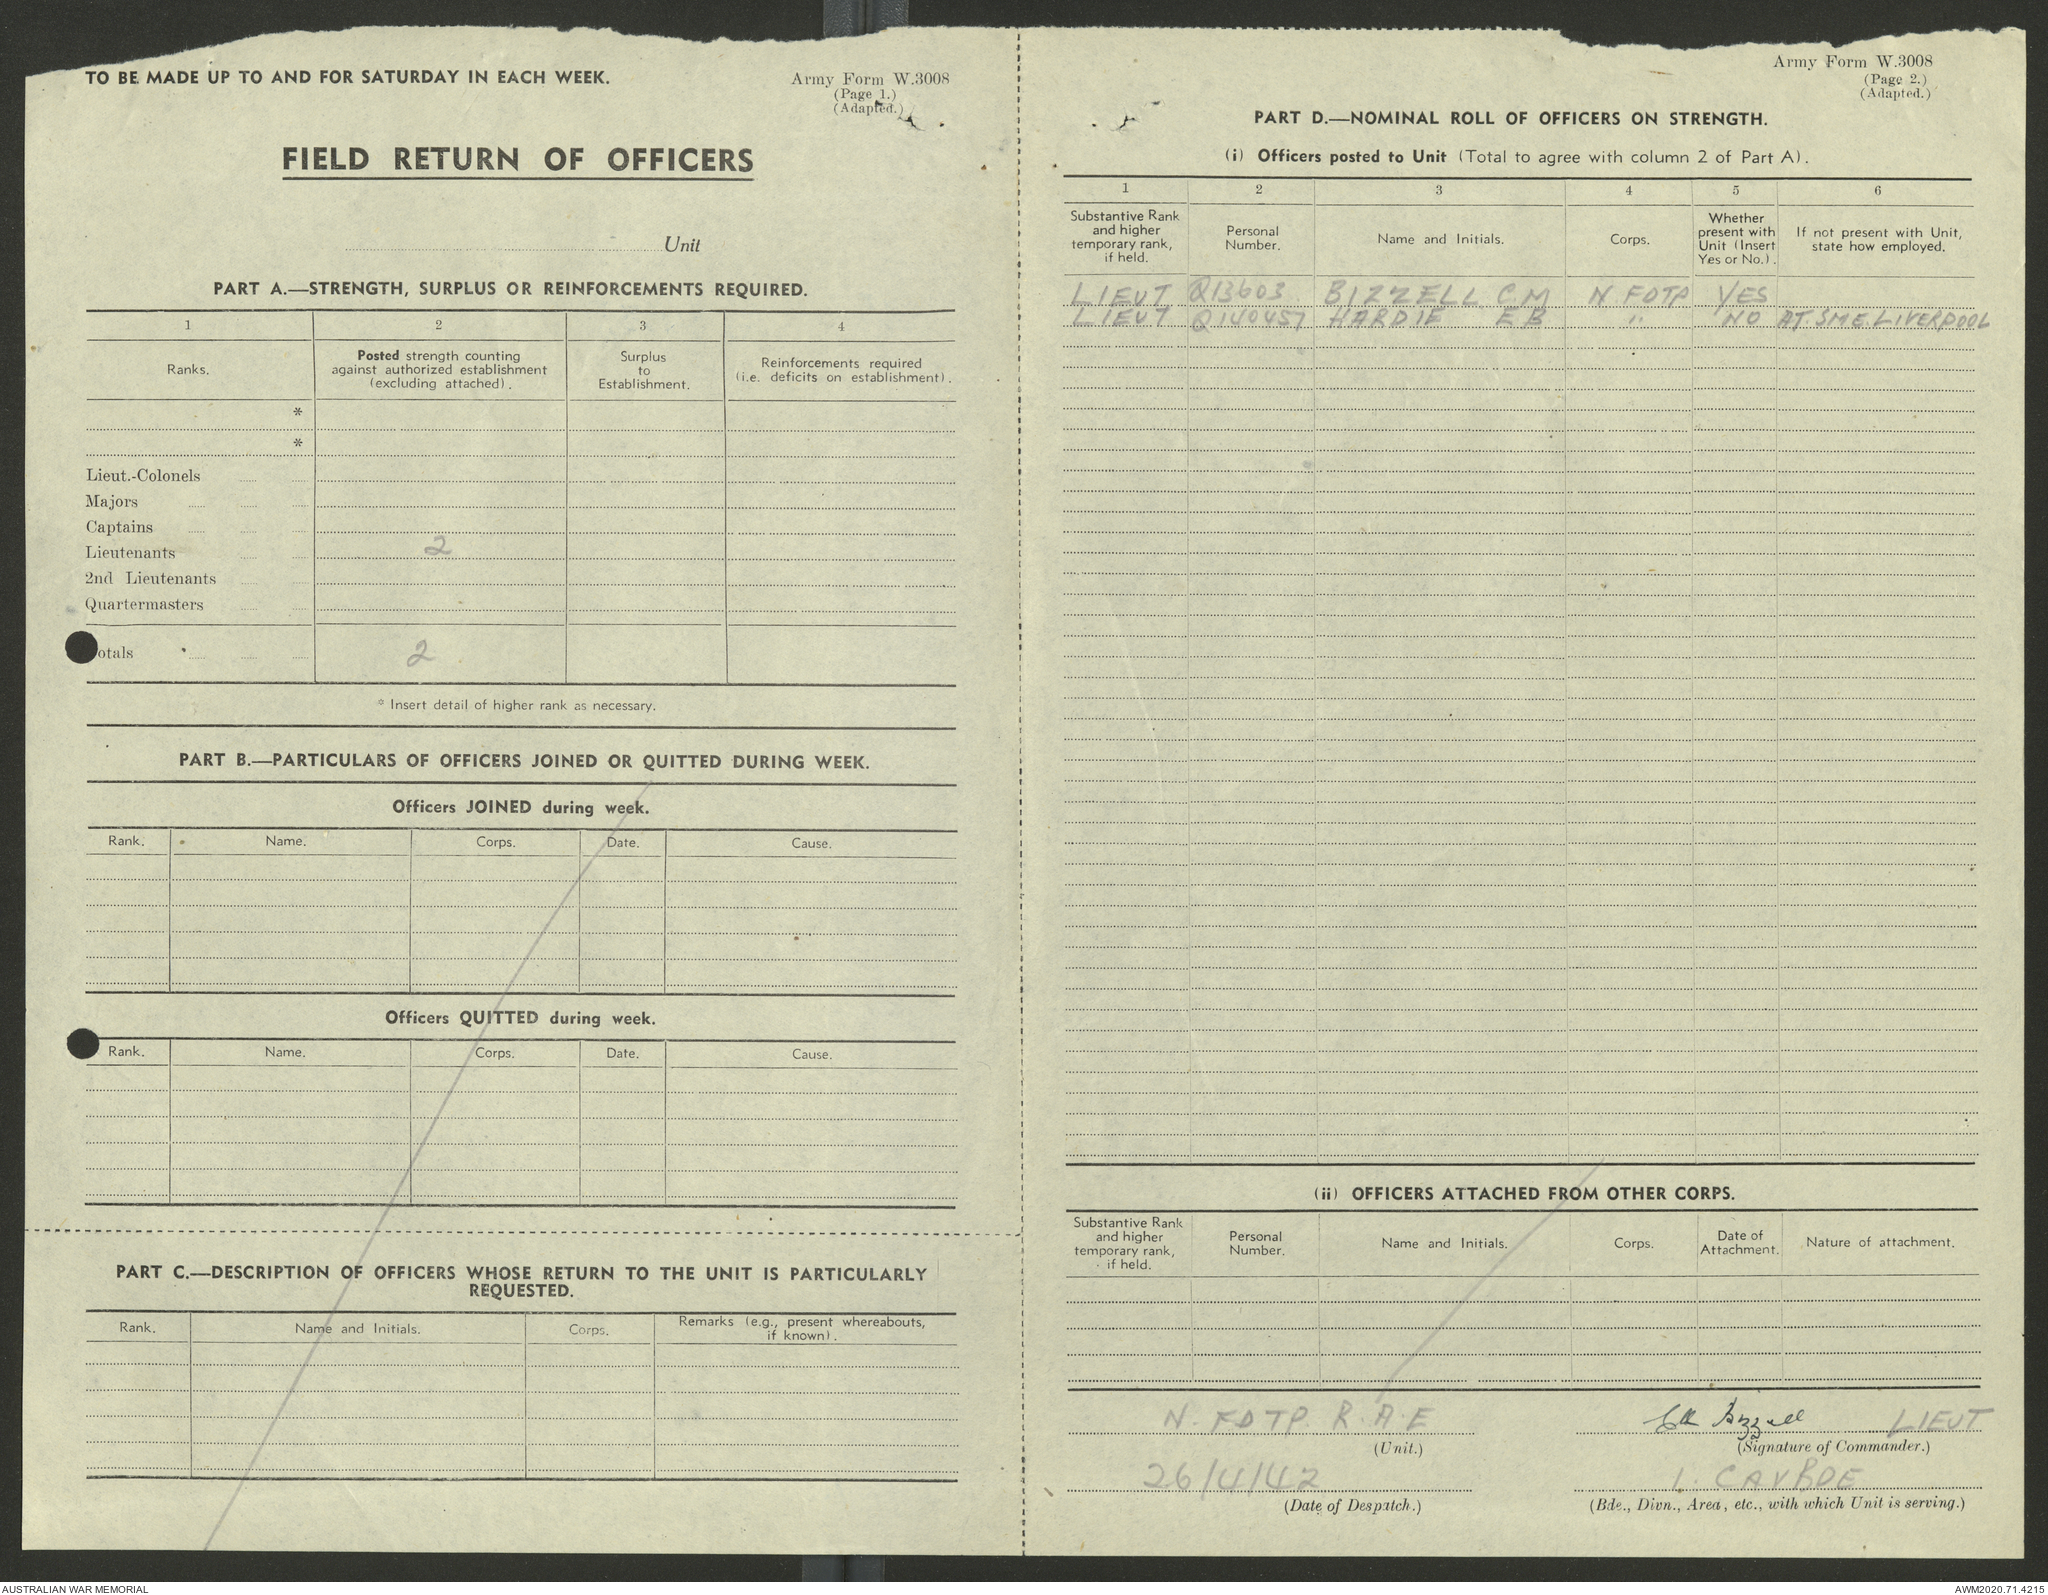 TO BE MADE UP TO AND FOR SATURDAY IN EACH WEEK.
Army Form W.3008
(Page 1.)
(Adapted.)
FIELD RETURN OF OFFICERS
Unit
PART A.—STRENGTH, SURPLUS OR REINFORCEMENTS REQUIRED.
1 2 3 4
Ranks. Posted strength counting against authorized establishment (excluding attached). Surplus to Establishment. Reinforcements required (i.e. deficits on establishment).
*
*
Lieut.-Colonels
Majors
Captains
Lieutenants 2
2nd Lieutenants
Quartermasters
otals 2
* Insert detail of higher rank as necessary.
PART B.—PARTICULARS OF OFFICERS JOINED OR QUITTED DURING WEEK.
Officers JOINED during week.
Rank. Name. Corps. Date. Cause.
Officers QUITTED during week.
Rank. Name. Corps. Date. Cause.
PART C.—DESCRIPTION OF OFFICERS WHOSE RETURN TO THE UNIT IS PARTICULARLY
REQUESTED.
Rank. Name and Initials. Corps. Remarks (e.g., present whereabouts, if known).
Army Form W.3008
(Page 2.)
(Adapted.)
PART D.—NOMINAL ROLL OF OFFICERS ON STRENGTH.
(i) Officers posted to Unit (Total to agree with column 2 of Part A).
1 2 3 4 5 6
Substantive Rank and higher temporary rank, if held. Personal Number. Name and Initials. Corps. Whether present with Unit (Insert Yes or No.). If not present with Unit, state how employed.
LIEUT Q13603 BIZZELL C M N FDTP YES
LIEUT Q140457 HARDIE E B " NO AT SME LIVERPOOL
(ii) OFFICERS ATTACHED FROM OTHER CORPS.
Substantive Rank and higher temporary rank, if held. Personal Number. Name and Initials. Corps. Date of Attachment. Nature of attachment.
N. FDTP. R.A.E
(Unit.)
CM Bizzell LIEUT
(Signature of Commander.)
26/4/42
(Date of Despatch.)
1. CAV BDE
(Bde., Divn., Area, etc., with which Unit is serving.)
AUSTRALIAN WAR MEMORIAL
AWM2020.71.4215